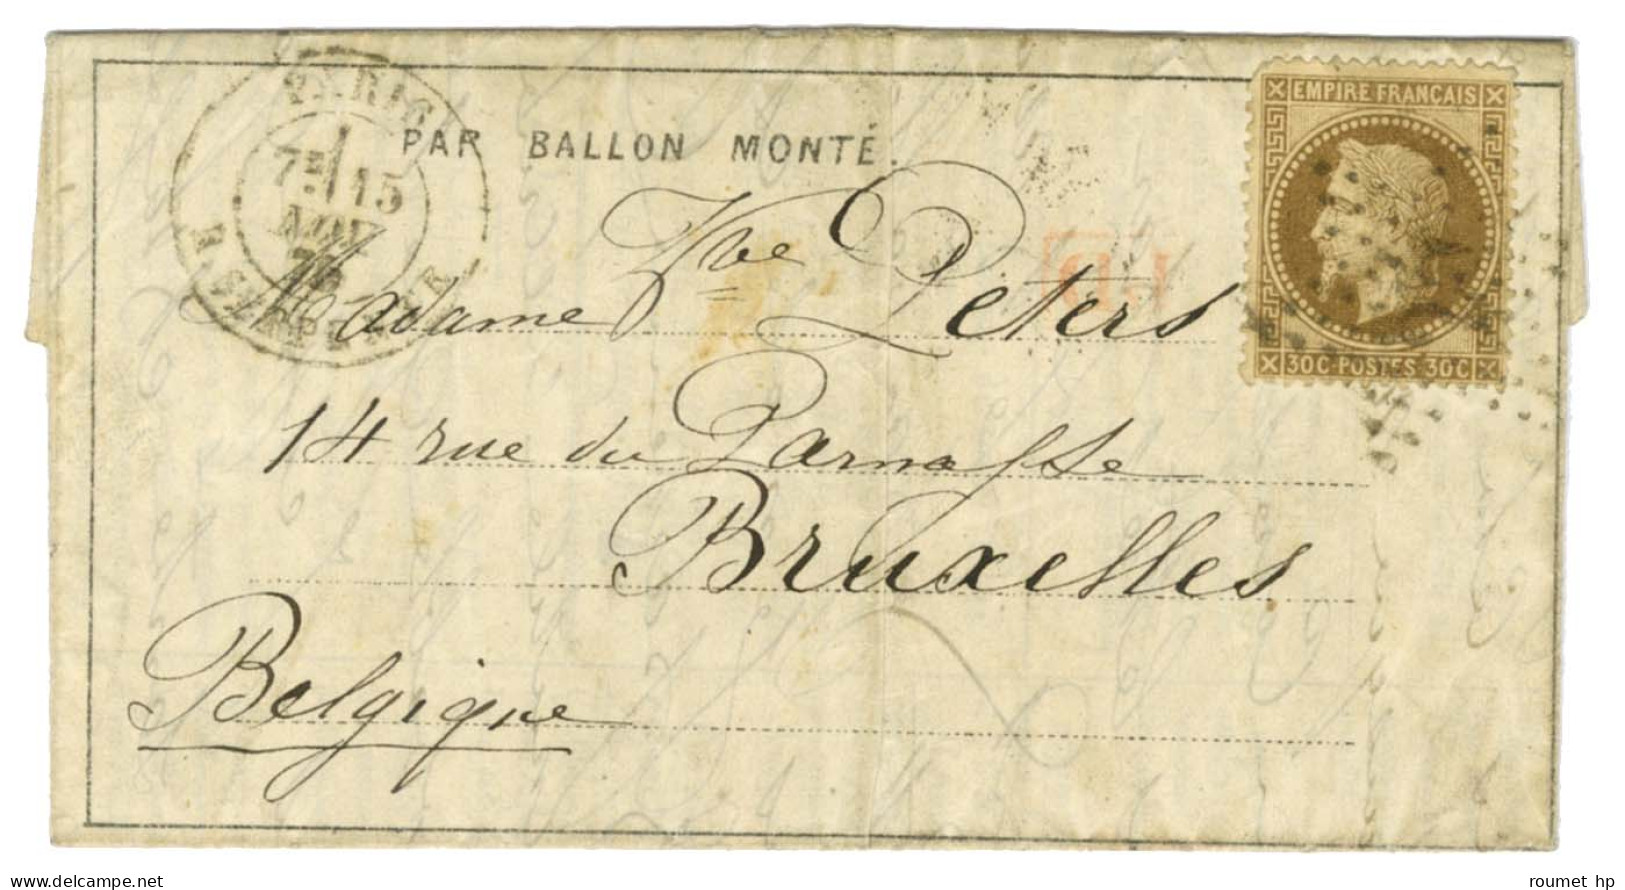 PARIS
7E 15
NOV
70
R. SERPENTE
PAR BALLON MONTÉ.
EMPIRE FRANÇAIS
30C POSTES 30C
P.D
Madame Vve Peters
14 rue du Parnasse
Bruxelles
Belgique
roumet hp